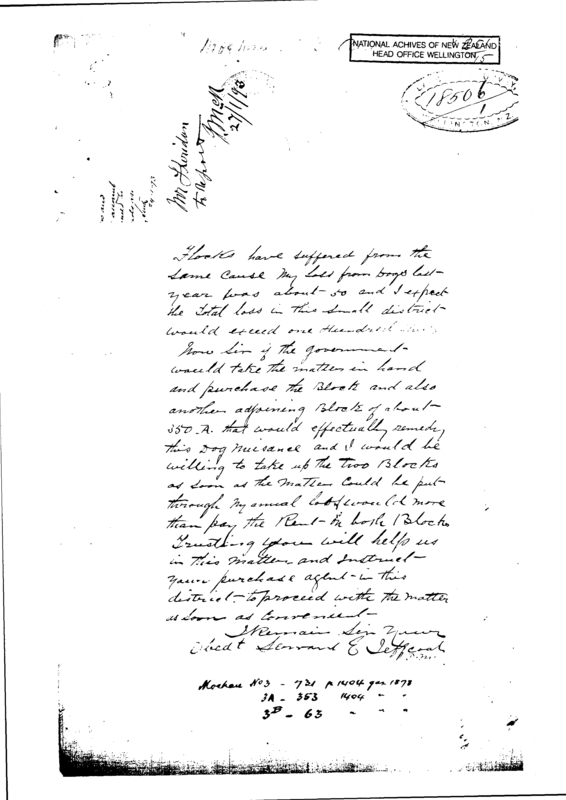 NATIONAL ACHIVES OF NEW ZEALAND
HEAD OFFICE WELLINGTON
18506
1
WELLINGTON, N.Z.
Mr Sheridan
to report
27/1/93
Flocks have suffered from the
same Cause My Loss from Dogs last
year was about 50 and I expect
the Total loss in this small district
would exceed one Hundred
Now Sir if the government
would take the matter in hand
and purchase the Block and also
another adjoining Block of about
350 A. that would effectually remedy
this Dog Nuisance and I would be
willing to take up the two Blocks
as soon as the Matter Could be put
through My anual loss would more
than pay the Rent on both Blocks
Trusting you will help us
in this Matter and Instruct
your purchase agent in this
district to proceed with the matter
as soon as Convenient
I Remain Sir Your
Obedt Servant E Jeffcoat
No 3 - 721 p 1404 gaz 1878
3A - 353 1404 " "
3B - 63 " " "